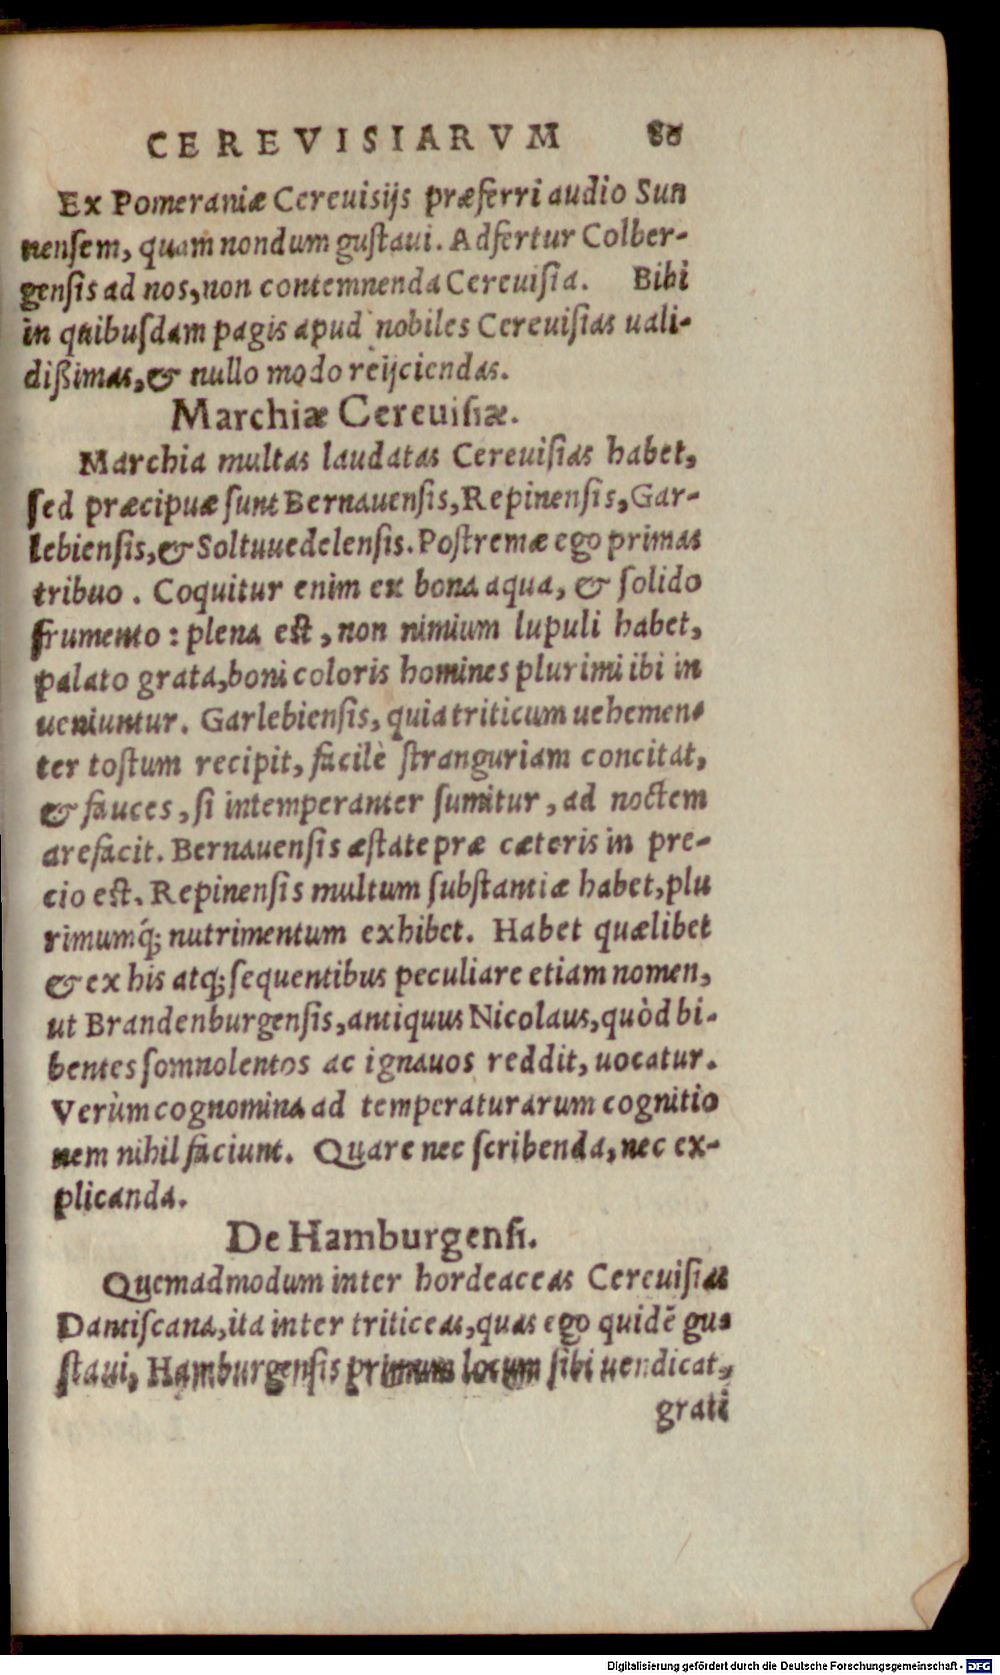 CEREVISIARVM 86
Ex Pomeraniæ Cereuisijs præferri audio Sun
nensem, quam nondum gustaui. Adfertur Colber-
gensis ad nos, non contemnenda Cereuisia. Bibi
in quibusdam pagis apud nobiles Cereuisias uali-
dißimas, & nullo modo reijciendas.
Marchiæ Cereuisiæ.
Marchia multas laudatas Cereuisias habet,
sed præcipuæ sunt Bernauensis, Repinensis, Gar-
lebiensis, & Soltuuedelensis. Postremæ ego primas
tribuo. Coquitur enim ex bona aqua, & solido
frumento: plena est, non nimium lupuli habet,
palato grata, boni coloris homines plurimi ibi in
ueniuntur. Garlebiensis, quia triticum uehemen-
ter tostum recipit, facilè stranguriam concitat,
& fauces, si intemperanter sumitur, ad noctem
arefacit. Bernauensis æstate præ cæteris in pre-
cio est. Repinensis multum substantiæ habet, plu
rimumq́; nutrimentum exhibet. Habet quælibet
& ex his atq; sequentibus peculiare etiam nomen,
ut Brandenburgensis, antiquus Nicolaus, quòd bi-
bentes somnolentos ac ignauos reddit, uocatur.
Verùm cognomina ad temperaturarum cognitio
nem nihil faciunt. Quare nec scribenda, nec ex-
plicanda.
De Hamburgensi.
Quemadmodum inter hordeaceas Cereuisias
Dantiscana, ita inter triticeas, quas ego quidẽ gu-
staui, Hamburgensis primum locum sibi uendicat,
grati
Digitalisierung gefördert durch die Deutsche Forschungsgemeinschaft - DFG